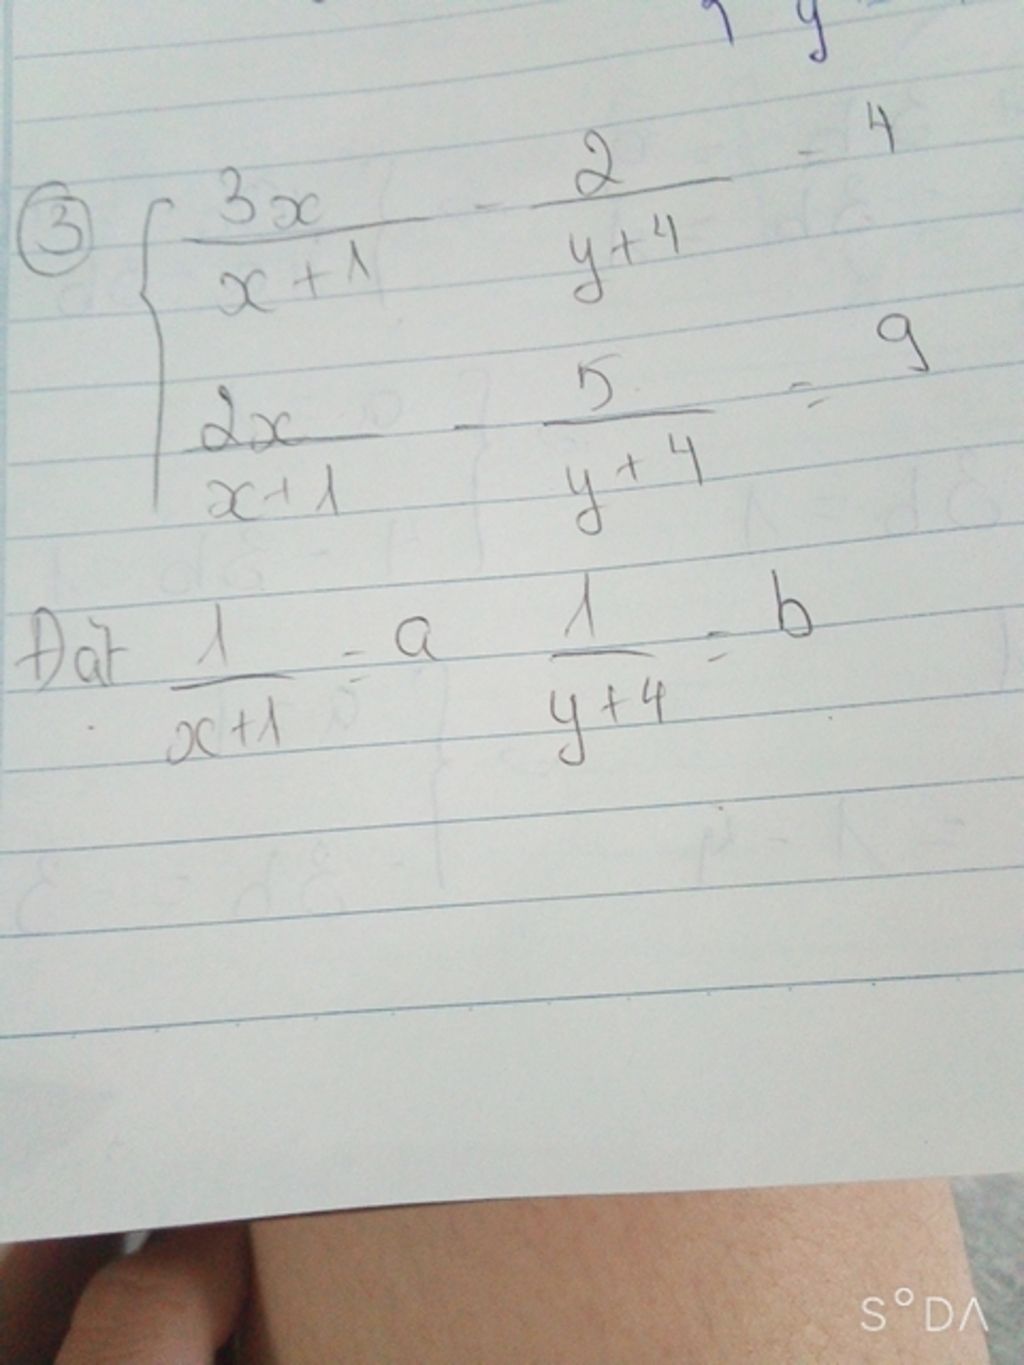 y
③ { 3x/(x+1) - 2/(y+4) = 4
2x/(x+1) - 5/(y+4) = 9
Đặt 1/(x+1) = a 1/(y+4) = b
S°DΛ